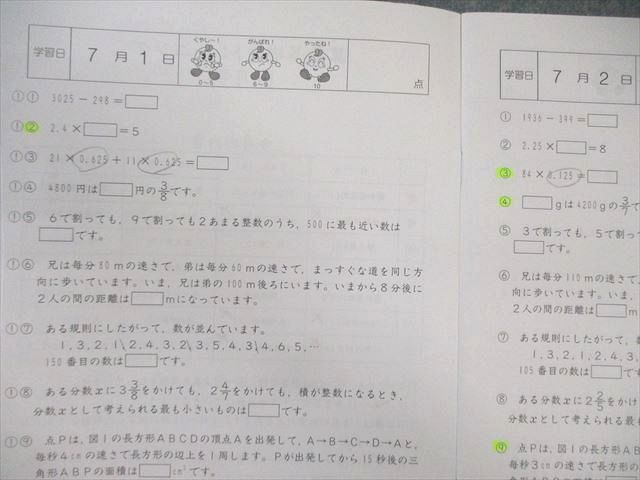 学習日 7月1日
くやしー！ がんばれ！ やったね！
0〜5 6〜9 10
点
① 3025－298＝□
② 2.4×□＝5
③ 21×0.625＋11×0.625＝□
④ 4800円は□円の3/8です。
⑤ 6で割っても，9で割っても2あまる整数のうち，500に最も近い数は
□です。
⑥ 兄は毎分80mの速さで，弟は毎分60mの速さで，まっすぐな道を同じ方
向に歩いています。いま，兄は弟の100m後ろにいます。いまから8分後に
2人の間の距離は□mになっています。
⑦ ある規則にしたがって，数が並んでいます。
1，3，2，1，2，4，3，2，3，5，4，3，4，6，5，…
150番目の数は□です。
⑧ ある分数xに3 3/8をかけても，2 4/7をかけても，積が整数になるとき，
分数xとして考えられる最も小さいものは□です。
⑨ 点Pは，図1の長方形ABCDの頂点Aを出発して，A→B→C→D→Aと，
毎秒4cmの速さで長方形の辺上を1周します。Pが出発してから15秒後の三
角形ABPの面積は□cm²です。
学習日 7月2日
① 1936－399＝□
② 2.25×□＝8
③ 84×0.125＝□
④ □gは4200gの3/7で
⑤ 3で割っても，5で割って
□です。
⑥ 兄は毎分110mの速さで，
向に歩いています。いま，
2人の間の距離は□m
⑦ ある規則にしたがって，
1，3，2，1，2，4，3，
105番目の数は□
⑧ ある分数xに2 2/5をかけ
分数xとして考えられる最
⑨ 点Pは，図1の長方形A
毎秒3cmの速さで長方形の